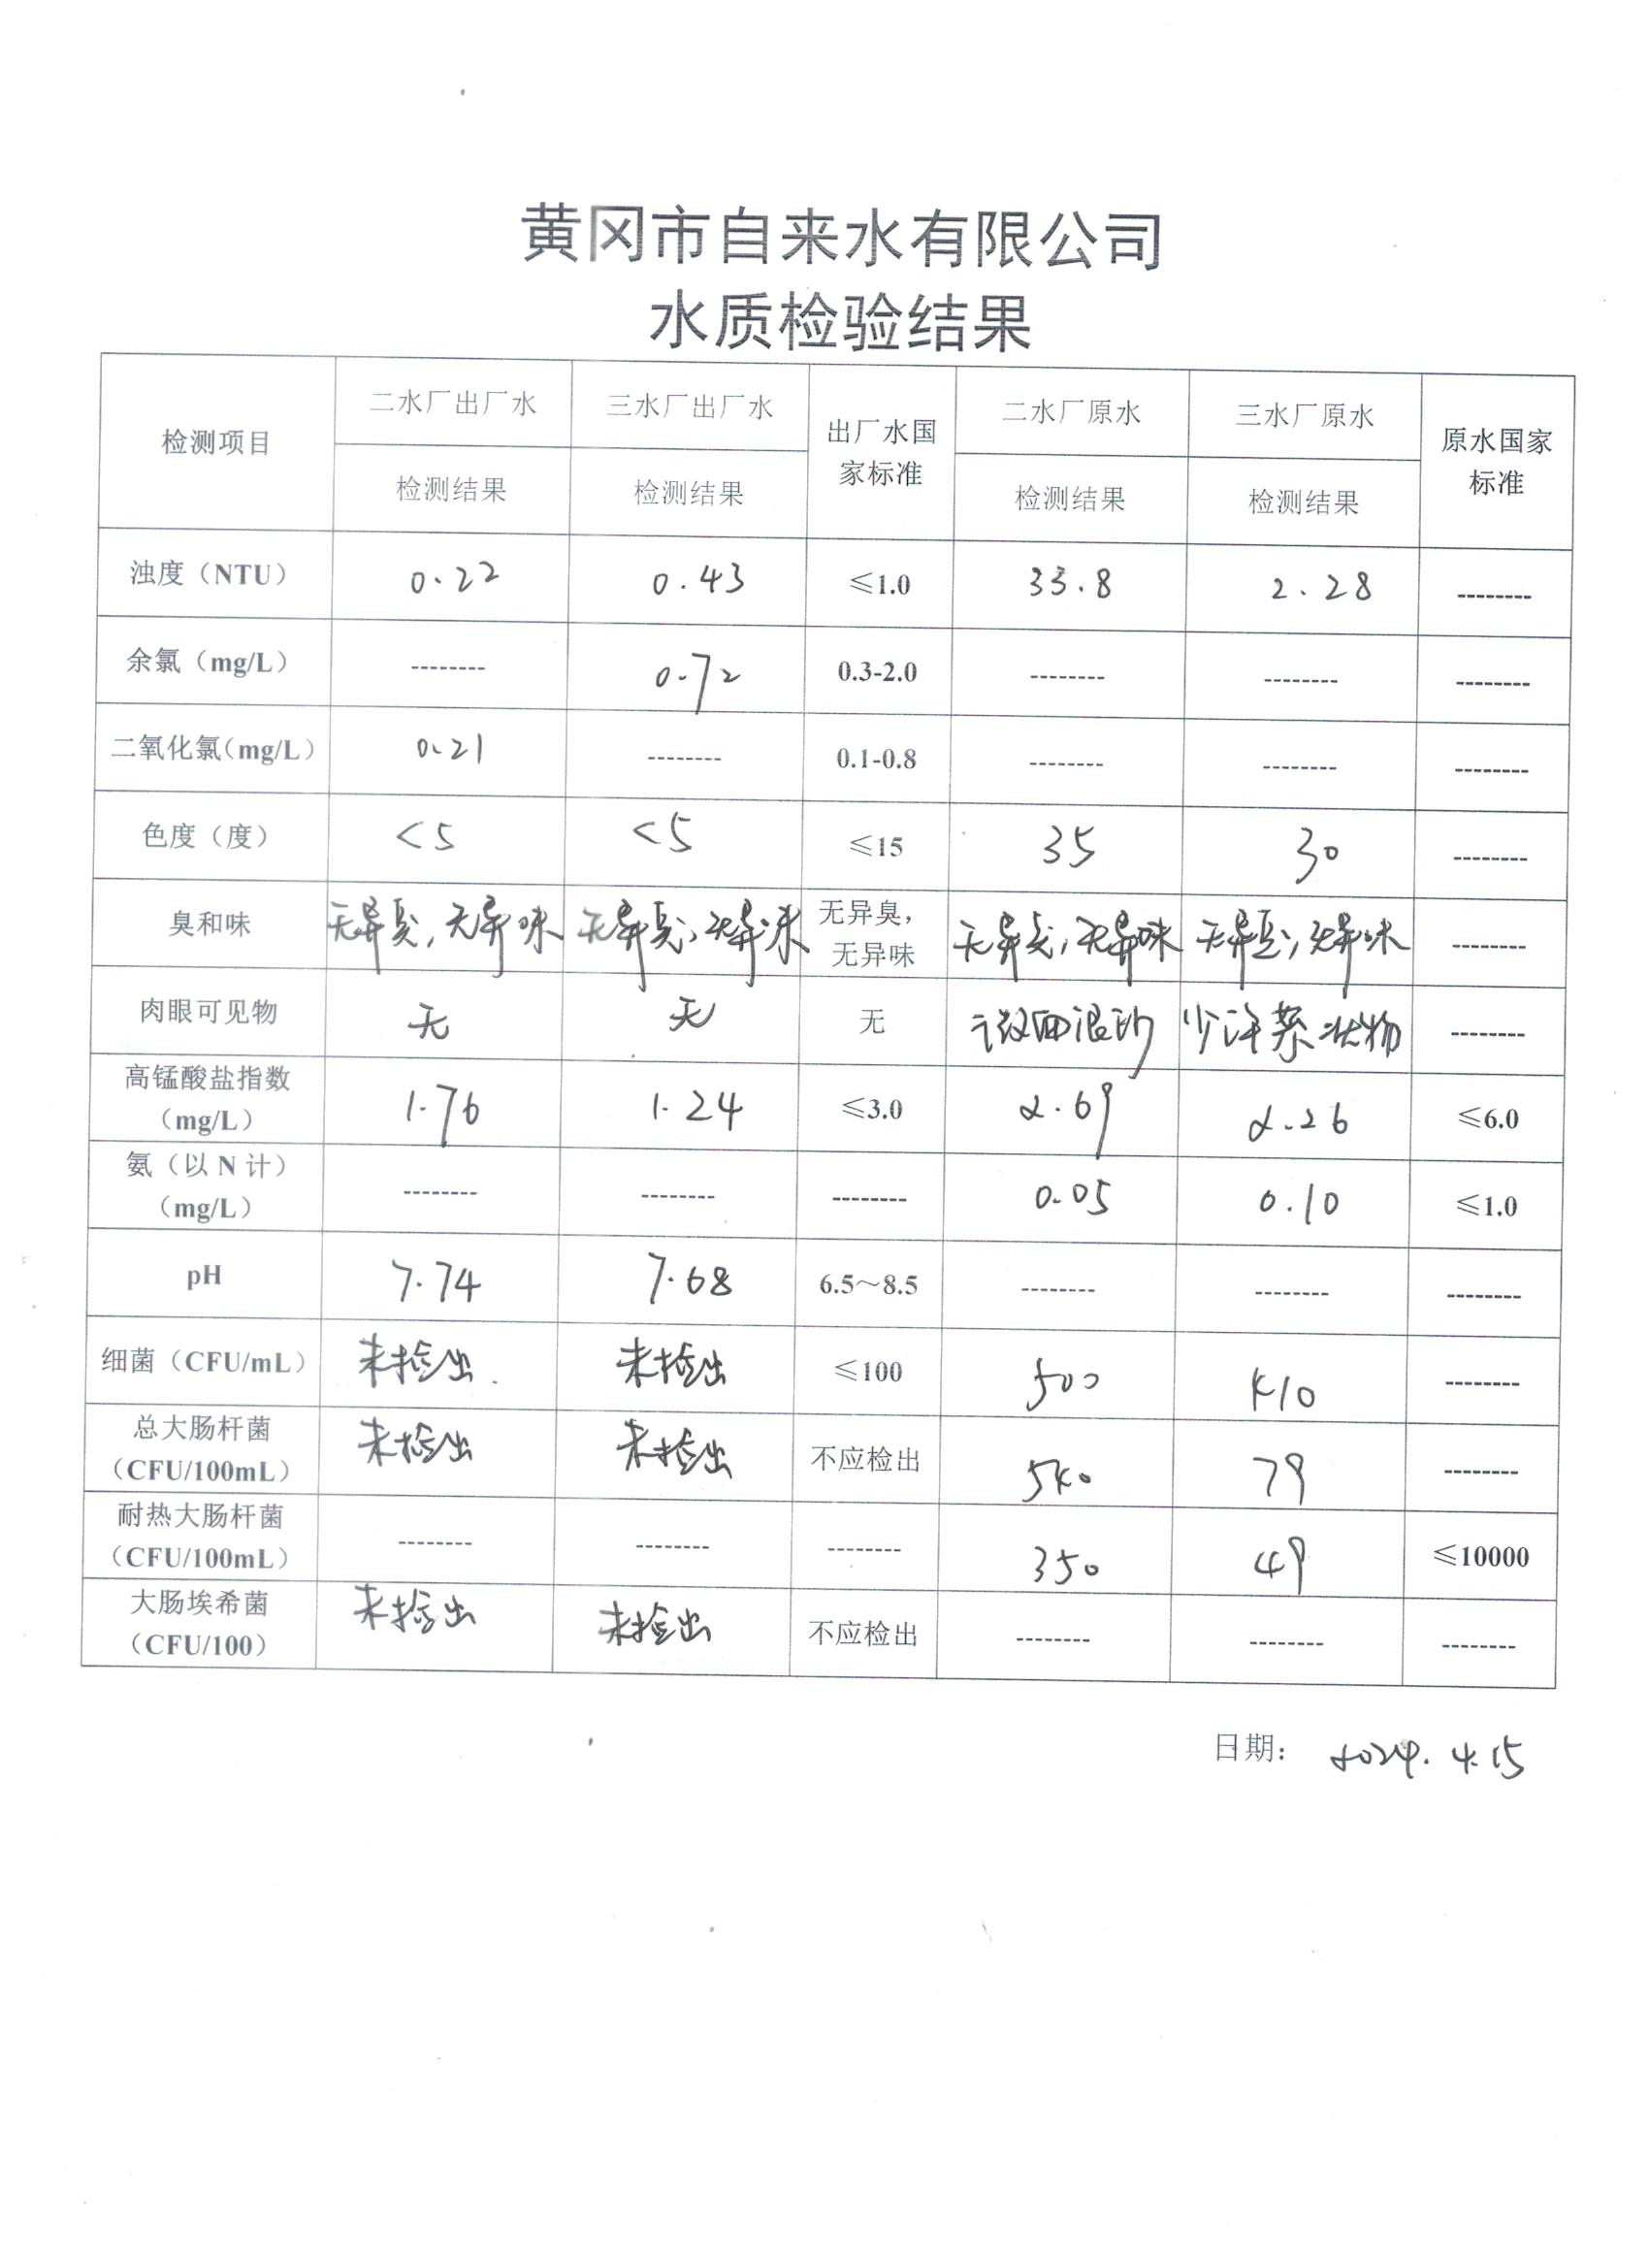 黄冈市自来水有限公司
水质检验结果
检测项目 二水厂出厂水 三水厂出厂水 出厂水国家标准 二水厂原水 三水厂原水 原水国家标准
检测结果 检测结果 检测结果 检测结果
浊度（NTU） 0.22 0.43 ≤1.0 33.8 2.28 --------
余氯（mg/L） -------- 0.72 0.3-2.0 -------- -------- --------
二氧化氯（mg/L） 0.21 -------- 0.1-0.8 -------- -------- --------
色度（度） <5 <5 ≤15 35 30 --------
臭和味 无异臭，无异味 无异臭，无异味 无异臭，无异味 无异臭，无异味 无异臭，无异味 --------
肉眼可见物 无 无 无 泥砂 少许絮状物 --------
高锰酸盐指数（mg/L） 1.76 1.24 ≤3.0 2.69 2.26 ≤6.0
氨（以 N 计）（mg/L） -------- -------- -------- 0.05 0.10 ≤1.0
pH 7.74 7.68 6.5～8.5 -------- -------- --------
细菌（CFU/mL） 未检出 未检出 ≤100 500 410 --------
总大肠杆菌（CFU/100mL） 未检出 未检出 不应检出 540 79 --------
耐热大肠杆菌（CFU/100mL） -------- -------- -------- 350 49 ≤10000
大肠埃希菌（CFU/100） 未检出 未检出 不应检出 -------- -------- --------
日期： 2024.4.15